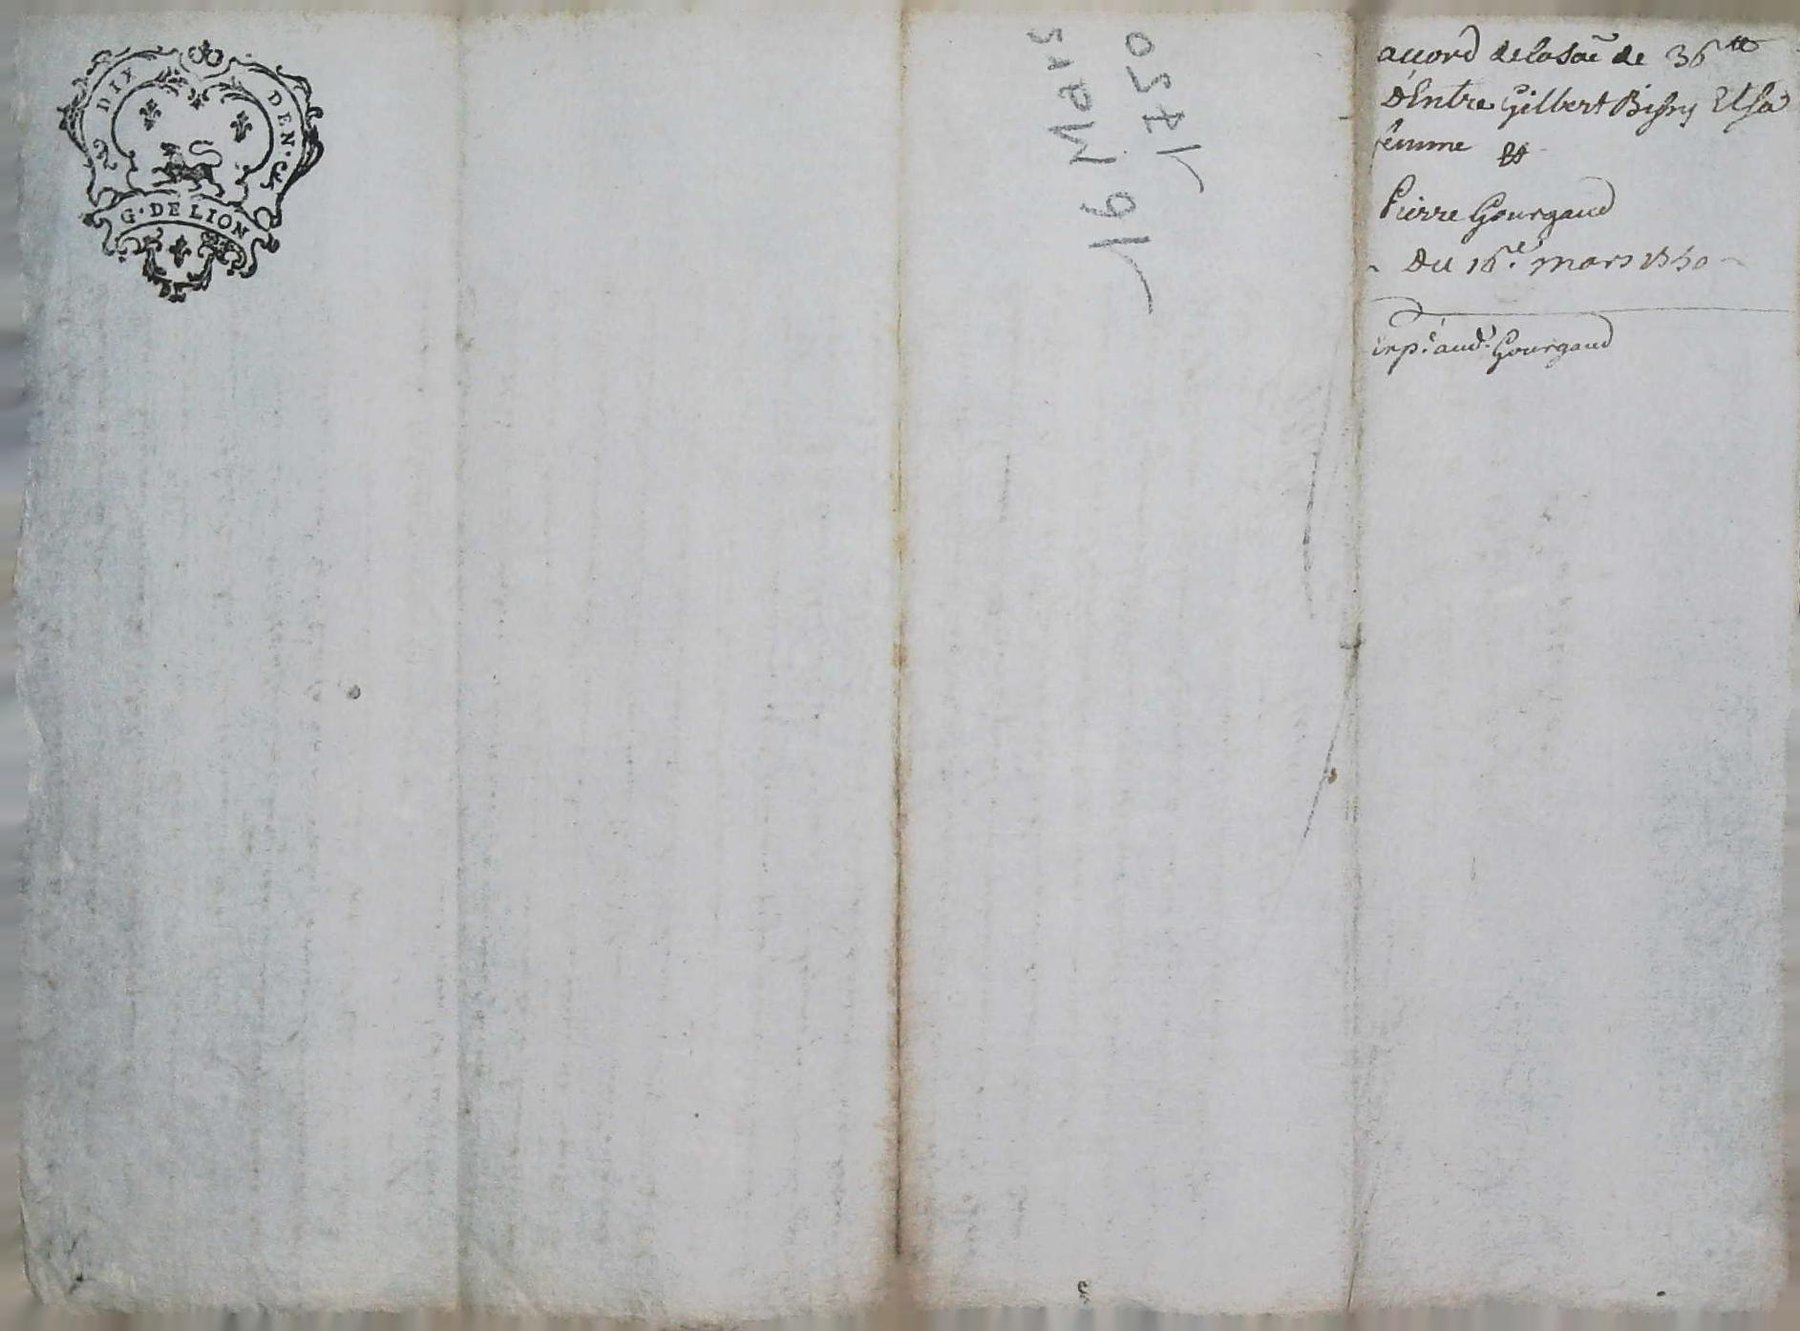 DIX DEN.
G. DE LION
16 Mars
1750
accord de la soe de 36 tt
d'Entre Gilbert Et sa
femme et
Pierre Gourgaud
Du 16.e mars 1750
Gourgaud